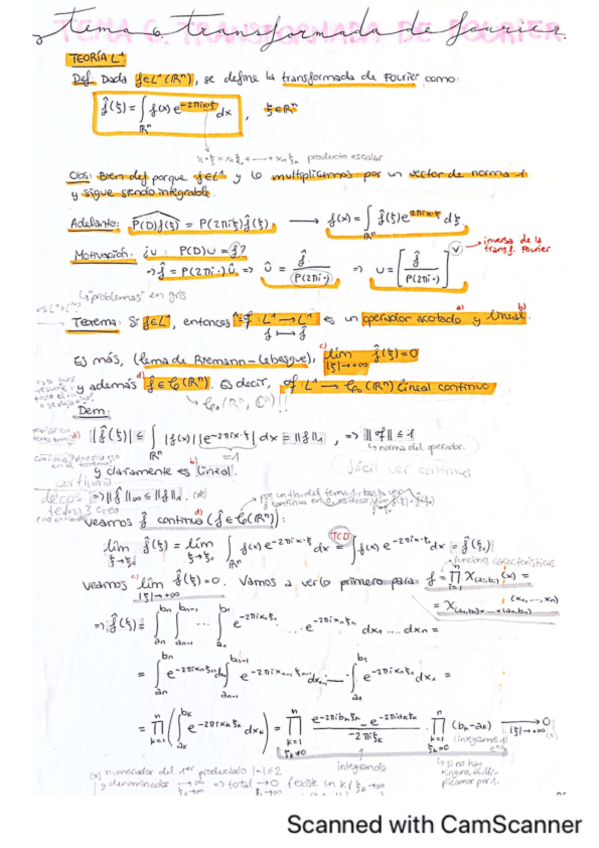 Tema 6. Transformada de Fourier.
TEORÍA L¹
Def. Dada f∈L¹(ℝⁿ), se define la transformada de Fourier como:
f̂(ξ) = ∫_ℝⁿ f(x) e^{-2πix·ξ} dx , ξ∈ℝⁿ
x·ξ = x₁ξ₁ + ---- + xₙξₙ producto escalar
Obs: Bien def porque f∈L¹ y lo multiplicamos por un vector de norma 1
y sigue siendo integrable.
Adelante: P(D)f(ξ)^ = P(2πiξ) f̂(ξ) ⟶ f(x) = ∫_ℝⁿ f̂(ξ) e^{2πix·ξ} dξ
Motivación: ¿u : P(D)u = f?
inversa de la
transf. Fourier
⇒ f̂ = P(2πi·) û ⇒ û = f̂ / P(2πi·) ⇒ u = [f̂ / P(2πi·)]^∨
↳ "problemas" en gris
Teorema: Si f∈L¹, entonces
es un operador acotado y lineal.
f ↦ f̂
Es más, (lema de Riemann-Lebesgue), lím_{|ξ|→+∞} f̂(ξ) = 0
y además f̂∈C₀(ℝⁿ). Es decir, ℱ: L¹ → C₀(ℝⁿ) lineal continuo
↳ C₀(ℝⁿ, ℂⁿ)!!
Dem:
a) |f̂(ξ)| ≤ ∫_ℝⁿ |f(x)| |e^{-2πix·ξ}| dx = ‖f‖₁ , ⇒ ‖ℱ‖ ≤ 1
=1
↳ norma del operador.
b) y claramente es lineal.
fácil ver continua
⇒ ‖f̂‖∞ ≤ ‖f‖₁.
veamos f̂ continua (f̂∈C₀(ℝⁿ)):
lím_{ξ→ξ₀} f̂(ξ) = lím_{ξ→ξ₀} ∫_ℝⁿ f(x) e^{-2πix·ξ} dx =^{TCD} ∫ f(x) e^{-2πix·ξ₀} dx = f̂(ξ₀)
funciones características
Veamos c) lím_{|ξ|→+∞} f̂(ξ) = 0. Vamos a verlo primero para f = ∏_{i=1}^n χ_(aᵢ,bᵢ)(x) =
(x₁, ..., xₙ)
= χ_(a₁,b₁)×...×(aₙ,bₙ)
⇒ f̂(ξ) = ∫_{aₙ}^{bₙ} ∫_{aₙ₋₁}^{bₙ₋₁} ... ∫_{a₁}^{b₁} e^{-2πix₁ξ₁} .... e^{-2πixₙξₙ} dx₁ .... dxₙ =
= ∫_{aₙ}^{bₙ} e^{-2πixₙξₙ} dxₙ ∫_{aₙ₋₁}^{bₙ₋₁} e^{-2πixₙ₋₁ξₙ₋₁} dxₙ₋₁ ... ∫_{a₁}^{b₁} e^{-2πix₁ξ₁} dx₁ =
= ∏_{k=1}^n (∫_{aₖ}^{bₖ} e^{-2πixₖξₖ} dxₖ) = ∏_{k=1, ξₖ≠0}^n (e^{-2πibₖξₖ} - e^{-2πiaₖξₖ}) / (-2πiξₖ) · ∏_{k=1, ξₖ=0}^n (bₖ-aₖ) ⟶_{|ξ|→+∞} 0
integrando
↳ si no hay
ninguno, multi-
plicamos por 1.
(*) numerador del 1er productorio |-|≤2
y denominador → ∞ ⇒ total → 0 (existe un k / ξₖ → ∞
Scanned with CamScanner